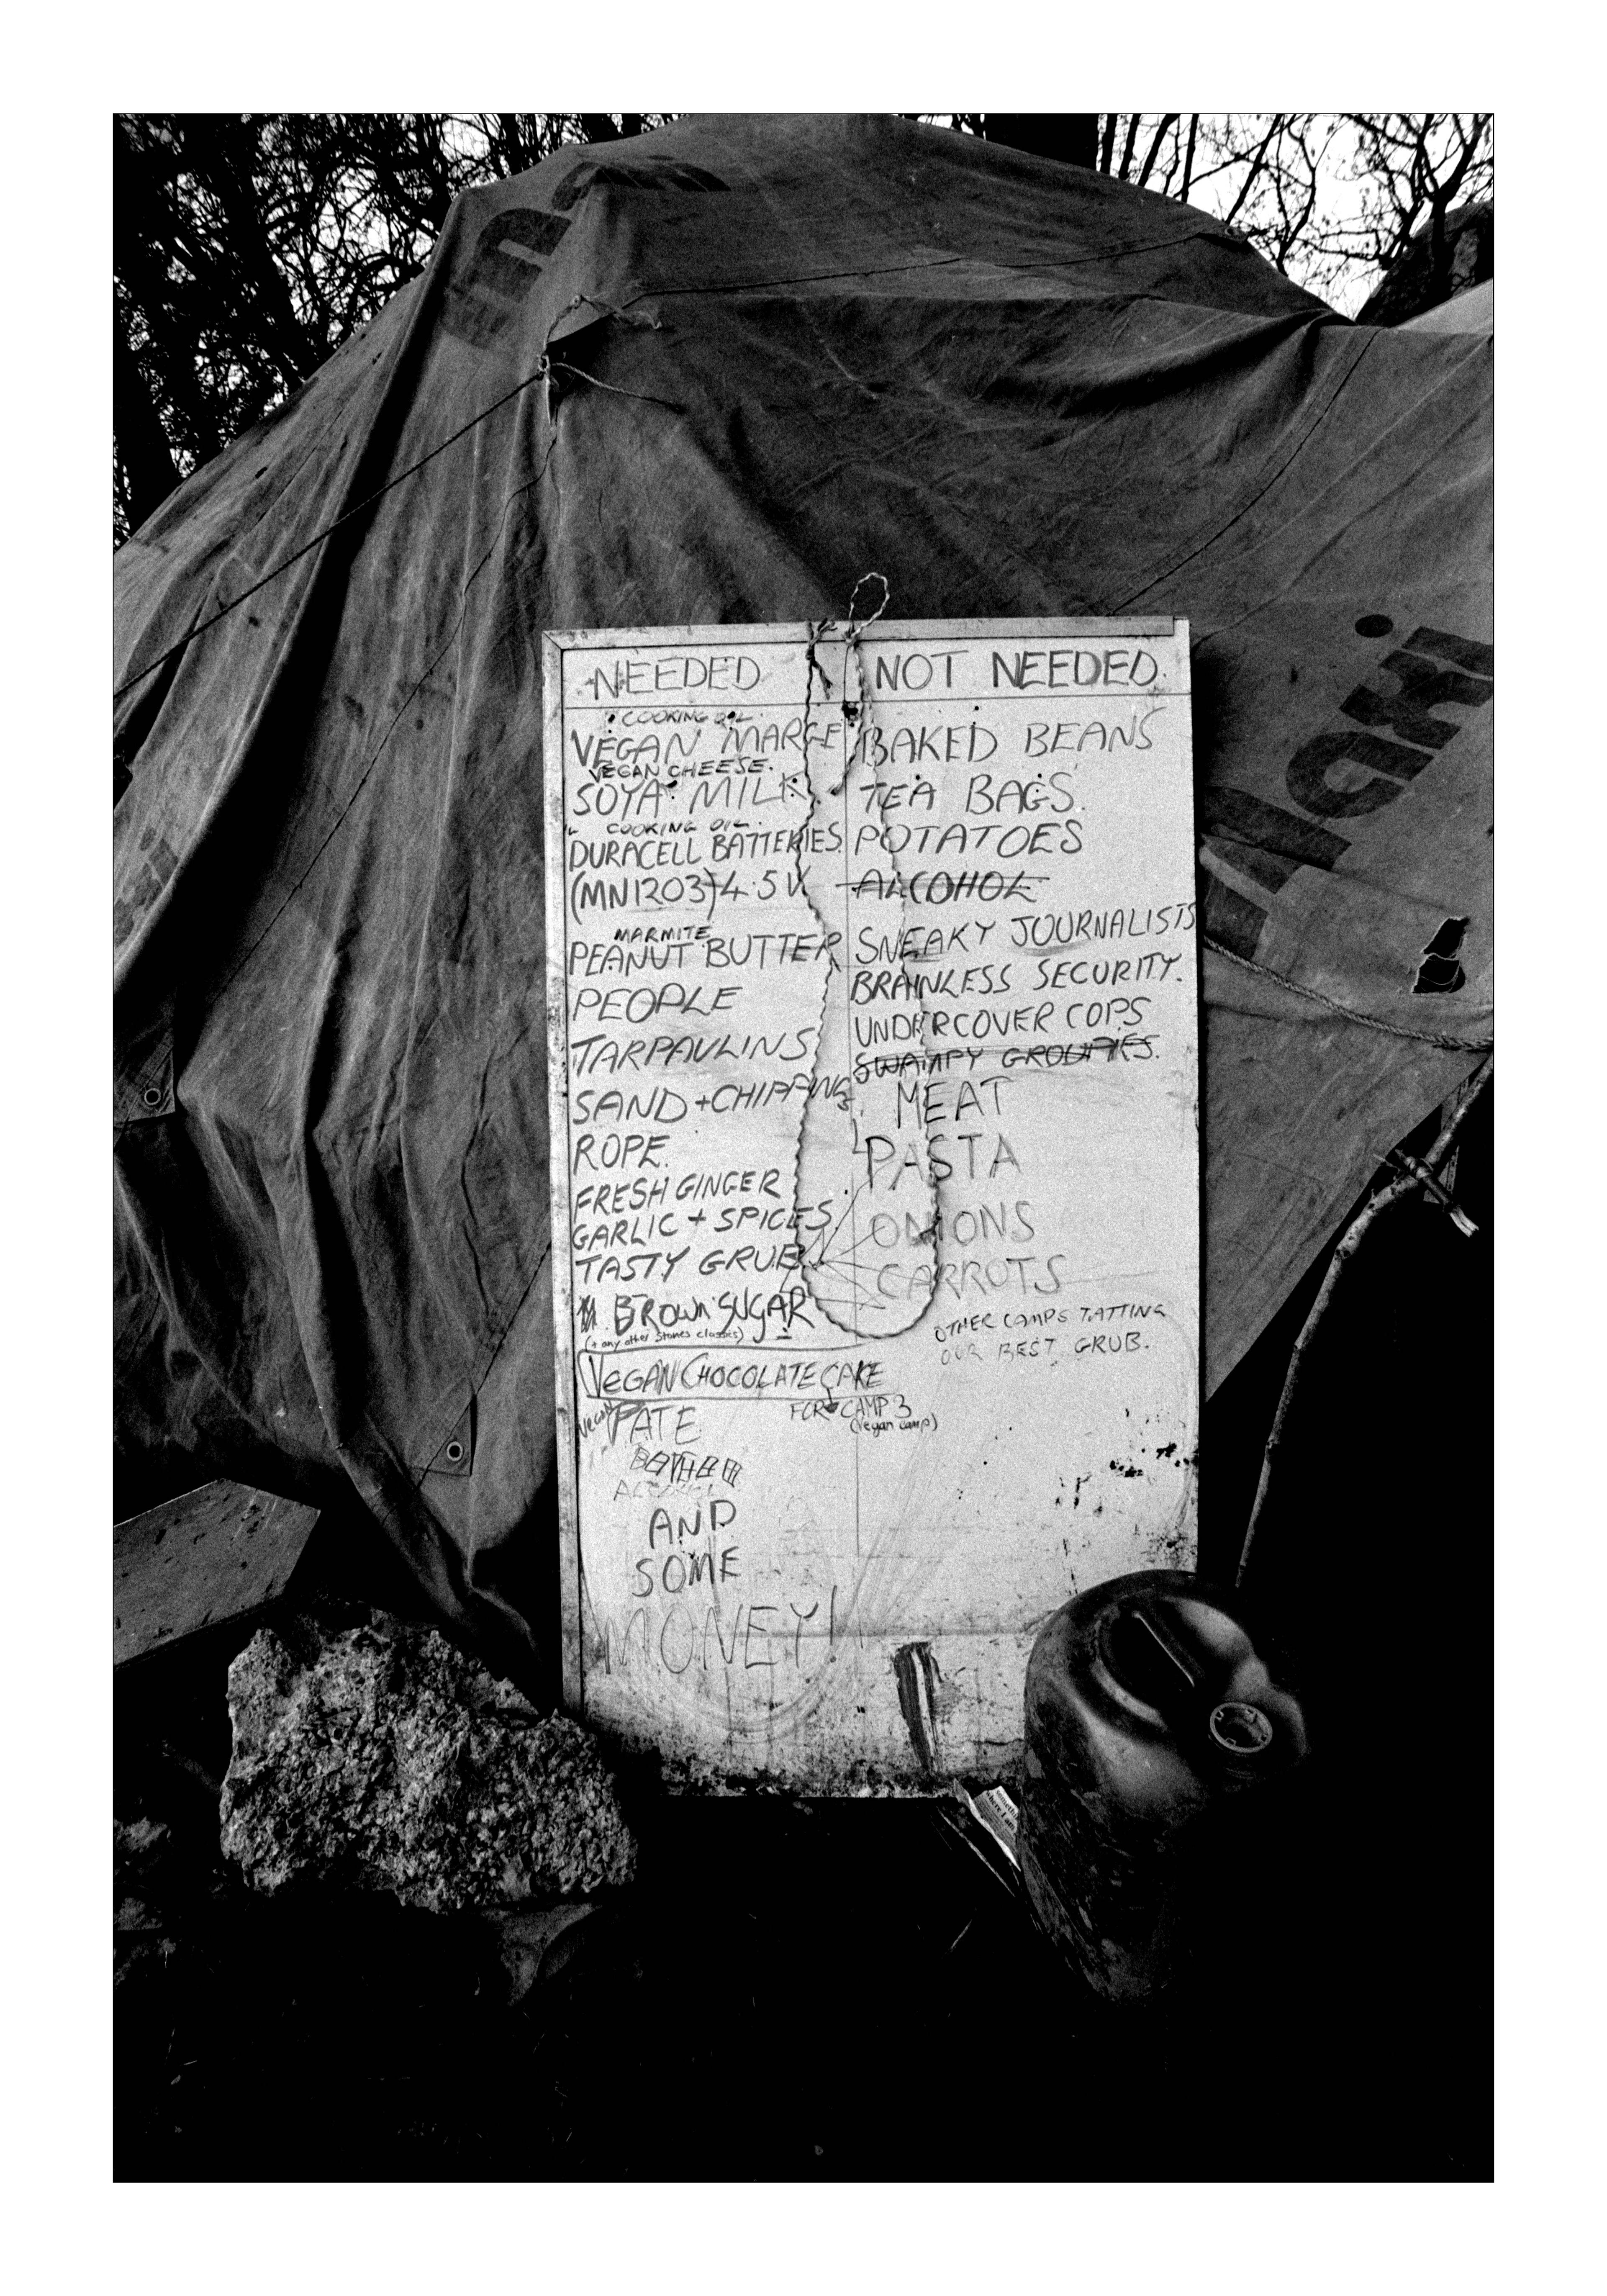 Maxi
NEEDED
COOKING OIL.
VEGAN MARGE
VEGAN CHEESE.
SOYA MILK.
COOKING OIL.
DURACELL BATTERIES.
(MN1203) 4.5V
MARMITE
PEANUT BUTTER
PEOPLE
TARPAULINS
SAND + CHIPPINGS.
ROPE.
FRESH GINGER
GARLIC + SPICES
TASTY GRUB
BROWN SUGAR
(+ any other Stones classics)
VEGAN CHOCOLATE CAKE
FOR CAMP 3
(Vegan camp)
VEGAN PATE
ALCOHOL
AND
SOME
MONEY!
NOT NEEDED.
BAKED BEANS
TEA BAGS.
POTATOES
ALCOHOL
SNEAKY JOURNALISTS
BRAINLESS SECURITY.
UNDERCOVER COPS
SWAMPY GROUPIES.
MEAT
PASTA
ONIONS
CARROTS
OTHER CAMPS TATTING
OUR BEST GRUB.